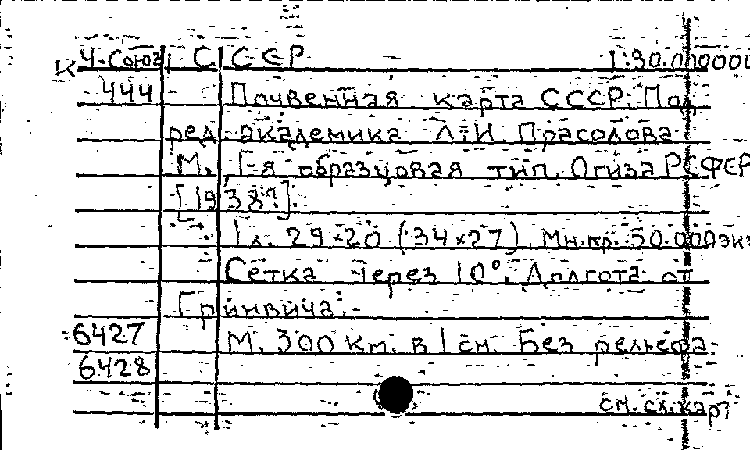 К Ч-Союз СССР 1:30.000000
444 Почвенная карта СССР. Под
ред. академика Л.И. Прасолова
М., 1-я образцовая тип. Огиза РСФСР
[1938?].
1 л. 29×20 (34×27) Мн.кр. 50.000 экз
Сетка через 10°. Долгота от
Гринвича.
6427 М. 300 км. в 1 см. Без рельефа.
6428
см. сх. карт